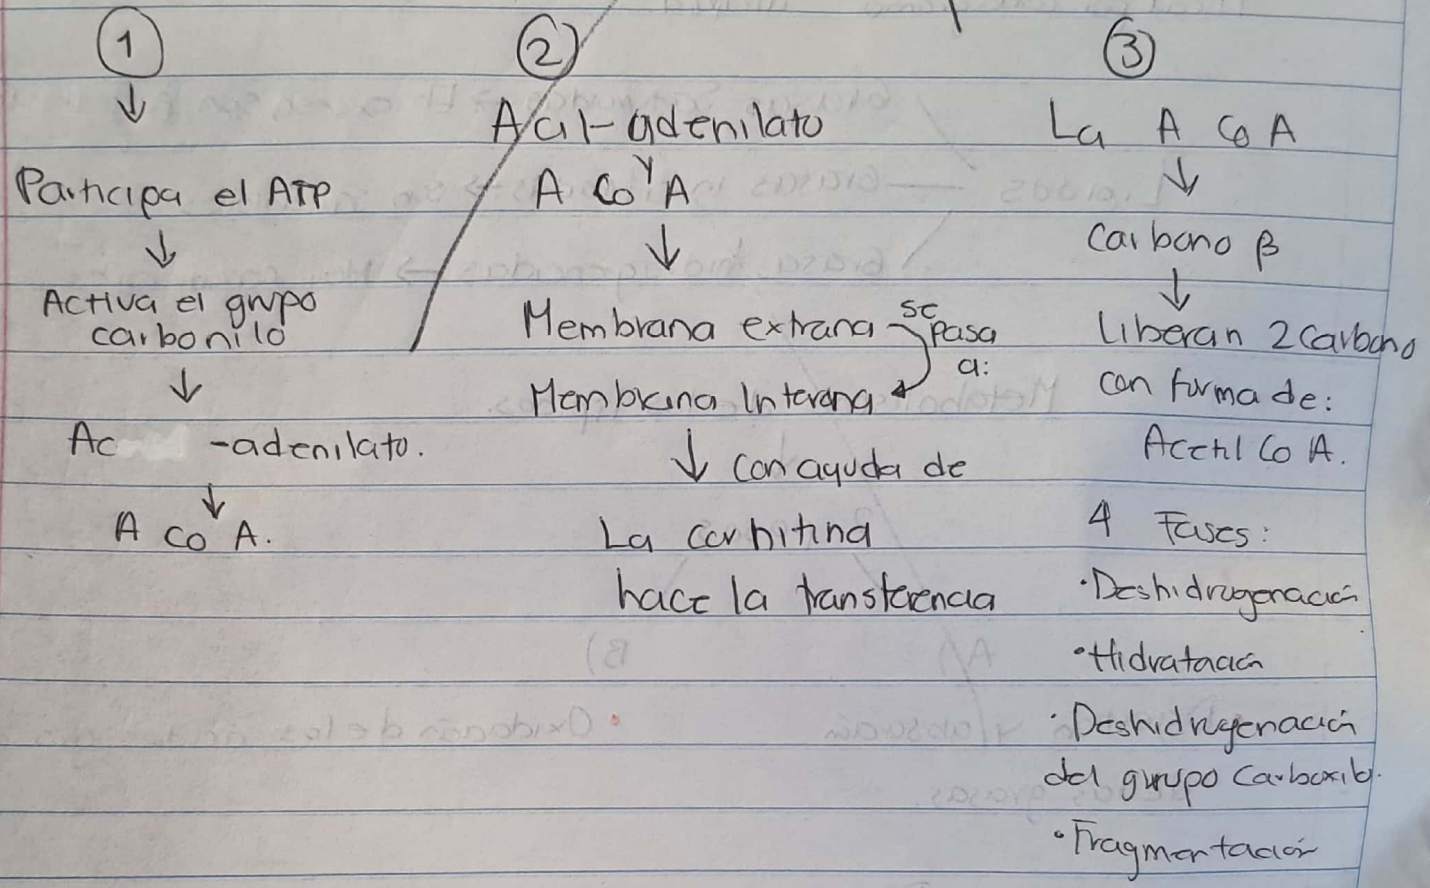 1
Participa el ATP
Activa el grupo
carbonilo
Ac -adenilato.
A Co A.
2
Acil-adenilato
y
A Co A
Membrana extrana
se
pasa
a:
Membrana Interana
con ayuda de
La carnitina
hace la transferencia
3
La A Co A
Carbono β
Liberan 2 Carbono
con forma de:
Acetil Co A.
4 Fases:
• Deshidrogenación
• Hidratación
• Deshidrogenación
del grupo Carboxilo.
• Fragmentación